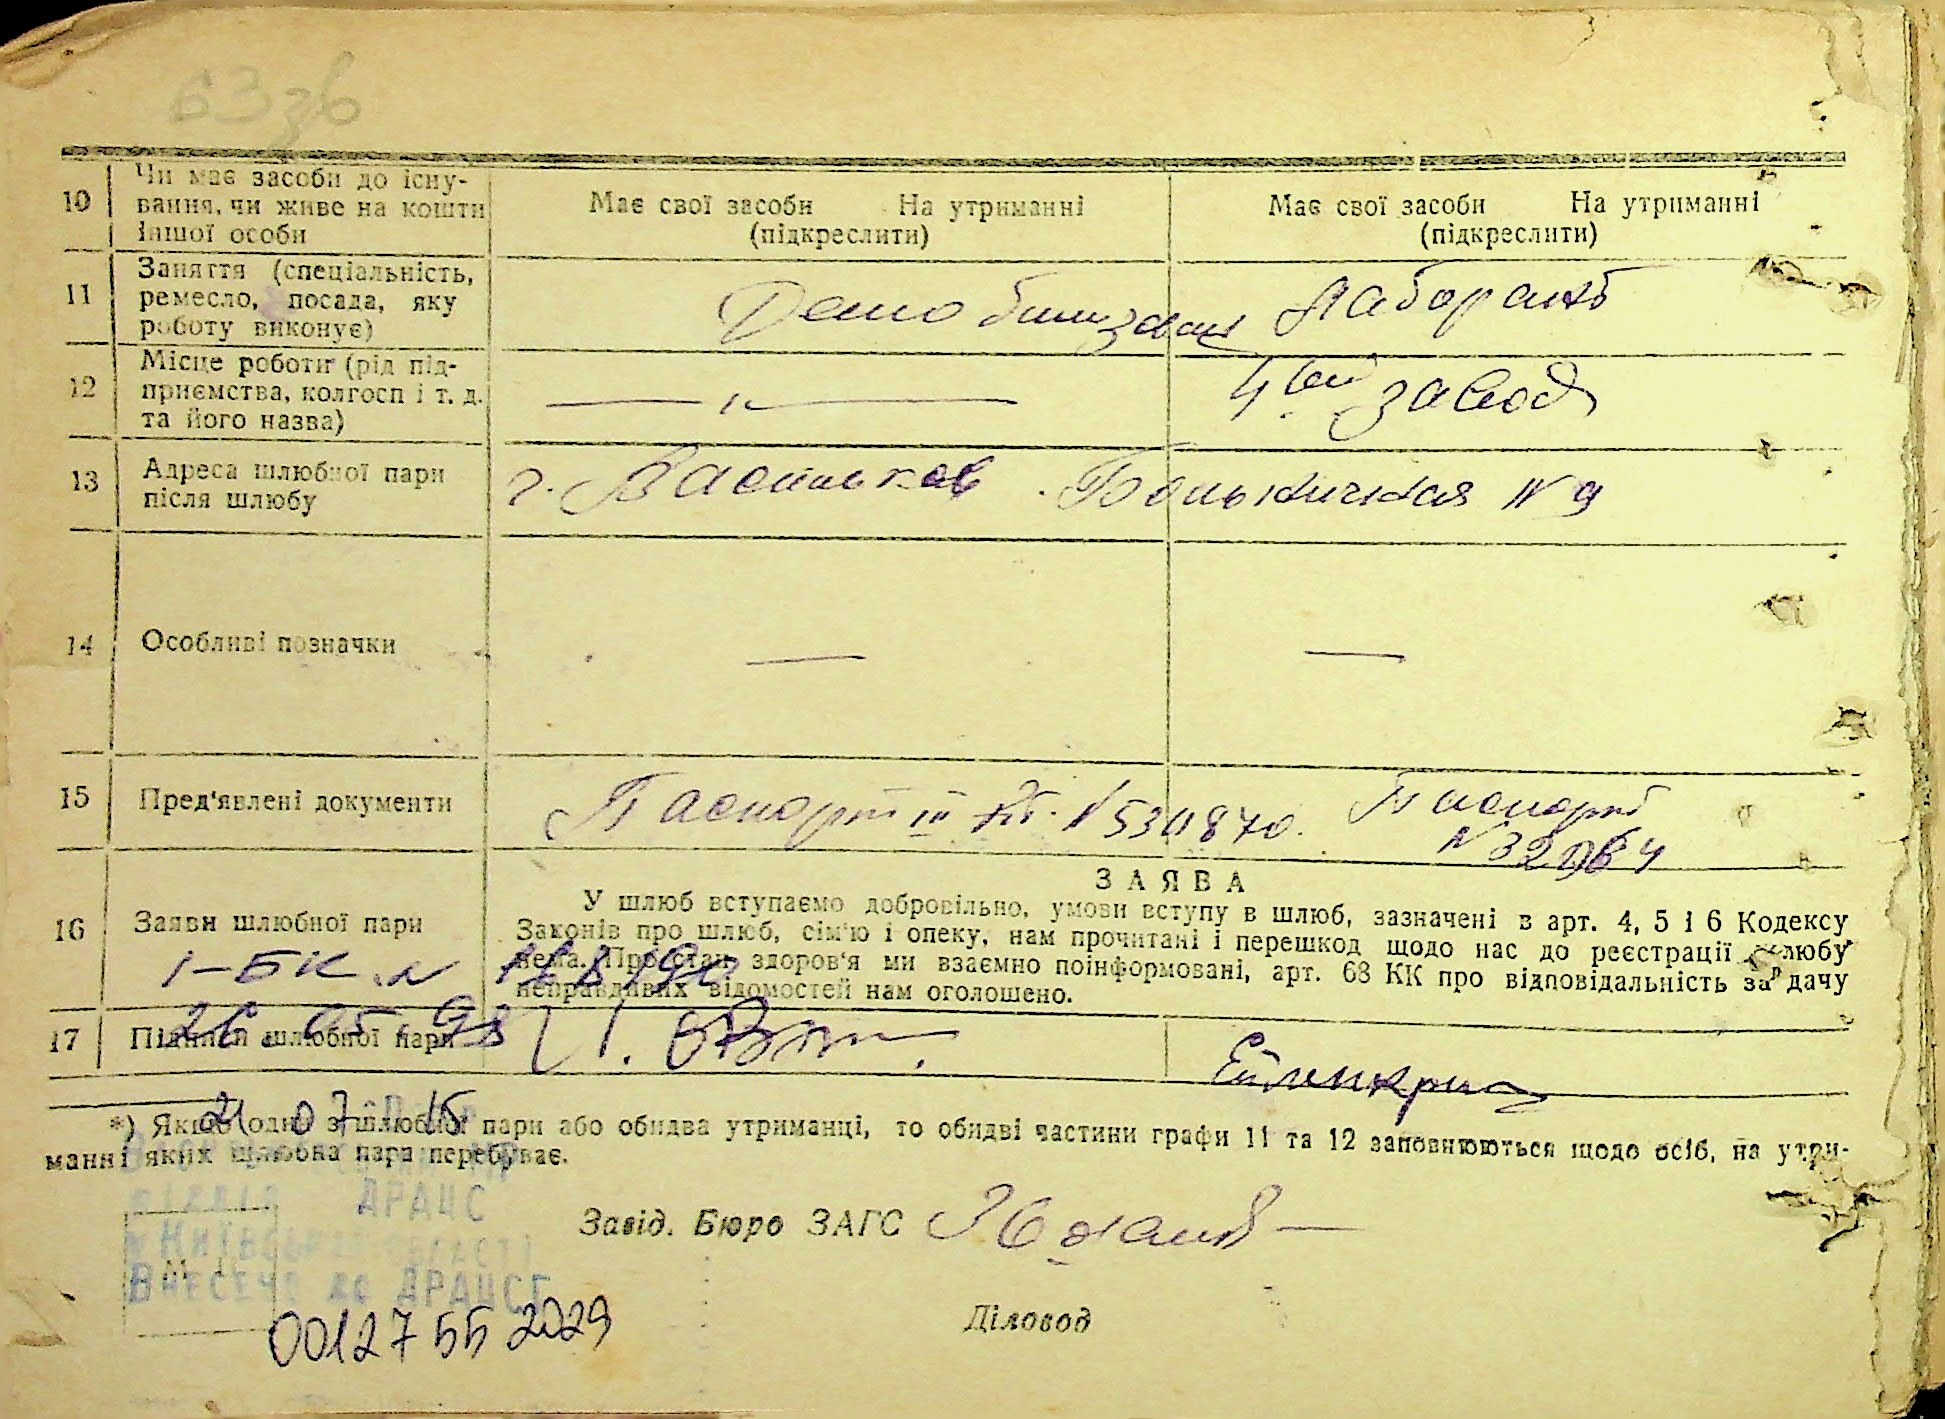 10 Чи має засоби до існу-
вання, чи живе на кошти
іншої особи
Має свої засоби На утриманні
(підкреслити)
Має свої засоби На утриманні
(підкреслити)
11 Заняття (спеціальність,
ремесло, посада, яку
роботу виконує)
Демобилизован
Лаборант
12 Місце роботи (рід під-
приємства, колгосп і т. д.
та його назва)
— " —
4ый завод
13 Адреса шлюбної пари
після шлюбу
г. Васильков. Больничная N 9
14 Особливі позначки
—
—
15 Пред'явлені документи
Паспорт III N
Паспорт
N
16 Заяви шлюбної пари
ЗАЯВА
У шлюб вступаємо добровільно, умови вступу в шлюб, зазначені в арт. 4, 5 і 6 Кодексу
Законів про шлюб, сім'ю і опеку, нам прочитані і перешкод щодо нас до реєстрації шлюбу
нема. Про стан здоров'я ми взаємно поінформовані, арт. 68 КК про відповідальність за дачу
неправдивих відомостей нам оголошено.
І-БК N
17 Підписи шлюбної пари
26 05 98
21 07 15
*) Якщо один з шлюбної пари або обидва утриманці, то обидві частини графи 11 та 12 заповнюються щодо осіб, на утри-
манні яких шлюбна пара перебуває.
відділ ДРАЦС
Київської області
Внесено до ДРАЦСГ
00127552029
Завід. Бюро ЗАГС
Діловод